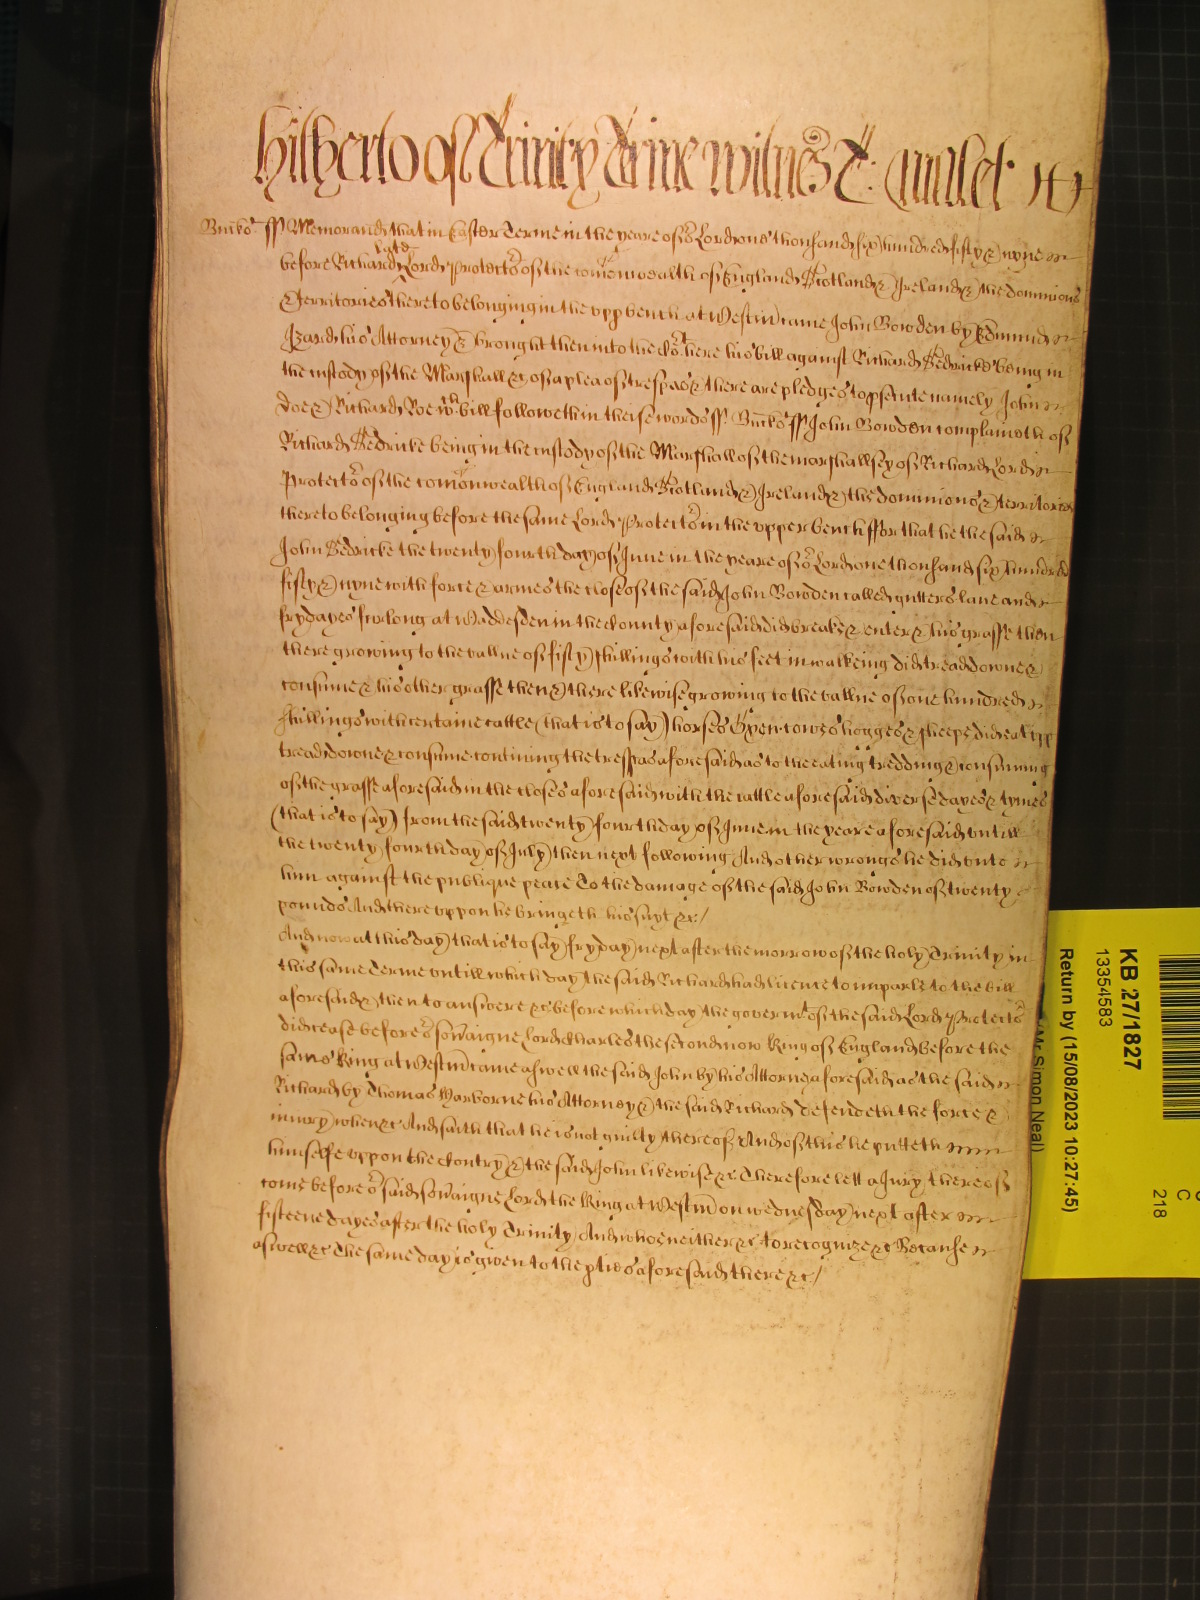 Hitherto of Trinity Terme Witnes
Bucks. ss Memorand that in Easter Terme in the yeare of or Lord one thousand six hundred fifty & nyne
before Richard late Lord Protector of the comonwealth of England Scotland & Ireland & the dominions
& territories thereto belonging in the upp bench at Westm came John Bowden by Edmund
Izard his Attorney & brought then into the Cort here his bill against Richard Sedricke being in
the custody of the Marshall &c of a plea of trespas & there are pledges to psecute namely John
Doe & Richard Roe wch bill followeth in theise words ss. Bucks ss John Bowden complaineth of
Richard Sedricke being in the custody of the Marshall of the marshallsey of Richard Lord
Protector of the comonwealth of England Scotland & Ireland & the dominions & territories
thereto belonging before the same Lord Protector in the upper bench ffor that he the said
John Sedricke the twenty fourth day of June in the yeare of or Lord one thousand six hundred
fifty & nyne with force & armes the close of the said John Bowden called gutters lane and
frydayes furlong at Waddesden in the County aforesaid did breake & enter & his grasse then
there growing to the vallue of fifty shillings with his feet in walkeing did tread downe &
consume & his other grasse then & there likewise growing to the vallue of one hundred
shillings with certaine cattle (that is to say) horses Oxen cowes hogges & sheepe did eat upp
tread downe & consume contining the trespas aforesaid as to the eating tredding & consuming
of the grasse aforesaid in the closes aforesaid with the cattle aforesaid diverse dayes & tymes
(that is to say) from the said twenty fourth day of June in the yeare aforesaid untill
the twenty fourth day of July then next following And other wrongs he did unto
him against the publique peace To the damage of the said John Bowden of twenty
pounds And thereuppon he bringeth his suyt &c/
And now at this day that is to say fryday next after the morrow of the holy Trinity in
this same Terme untill which day the said Richard had licence to imparle to the bill
aforesaid & then to answere &c before which day the governmt of the said Lord Protector
did cease before or soveraigne Lord Charles the second now King of England before the
same King at Westm came aswell the said John by his Attorney aforesaid as the said
Richard by Thomas Harborne his Attorney & the said Richard defendeth the force &
iniury when &c And saith that he is not guilty thereof And of this he putteth
himselfe uppon the Contry & the said John likewise &c Therefore lett a Jury thereof
come before or said soveraigne Lord the King at Westm on wednesday next after
fifteene dayes after the holy Trinity And who neither &c to recognize &c Because
aswell &c The same day is given to the pties aforesaid there &c/
KB 27/1827
13354583
Return by (15/08/2023 10:27:45)
(Mr Simon Neal)
C
218